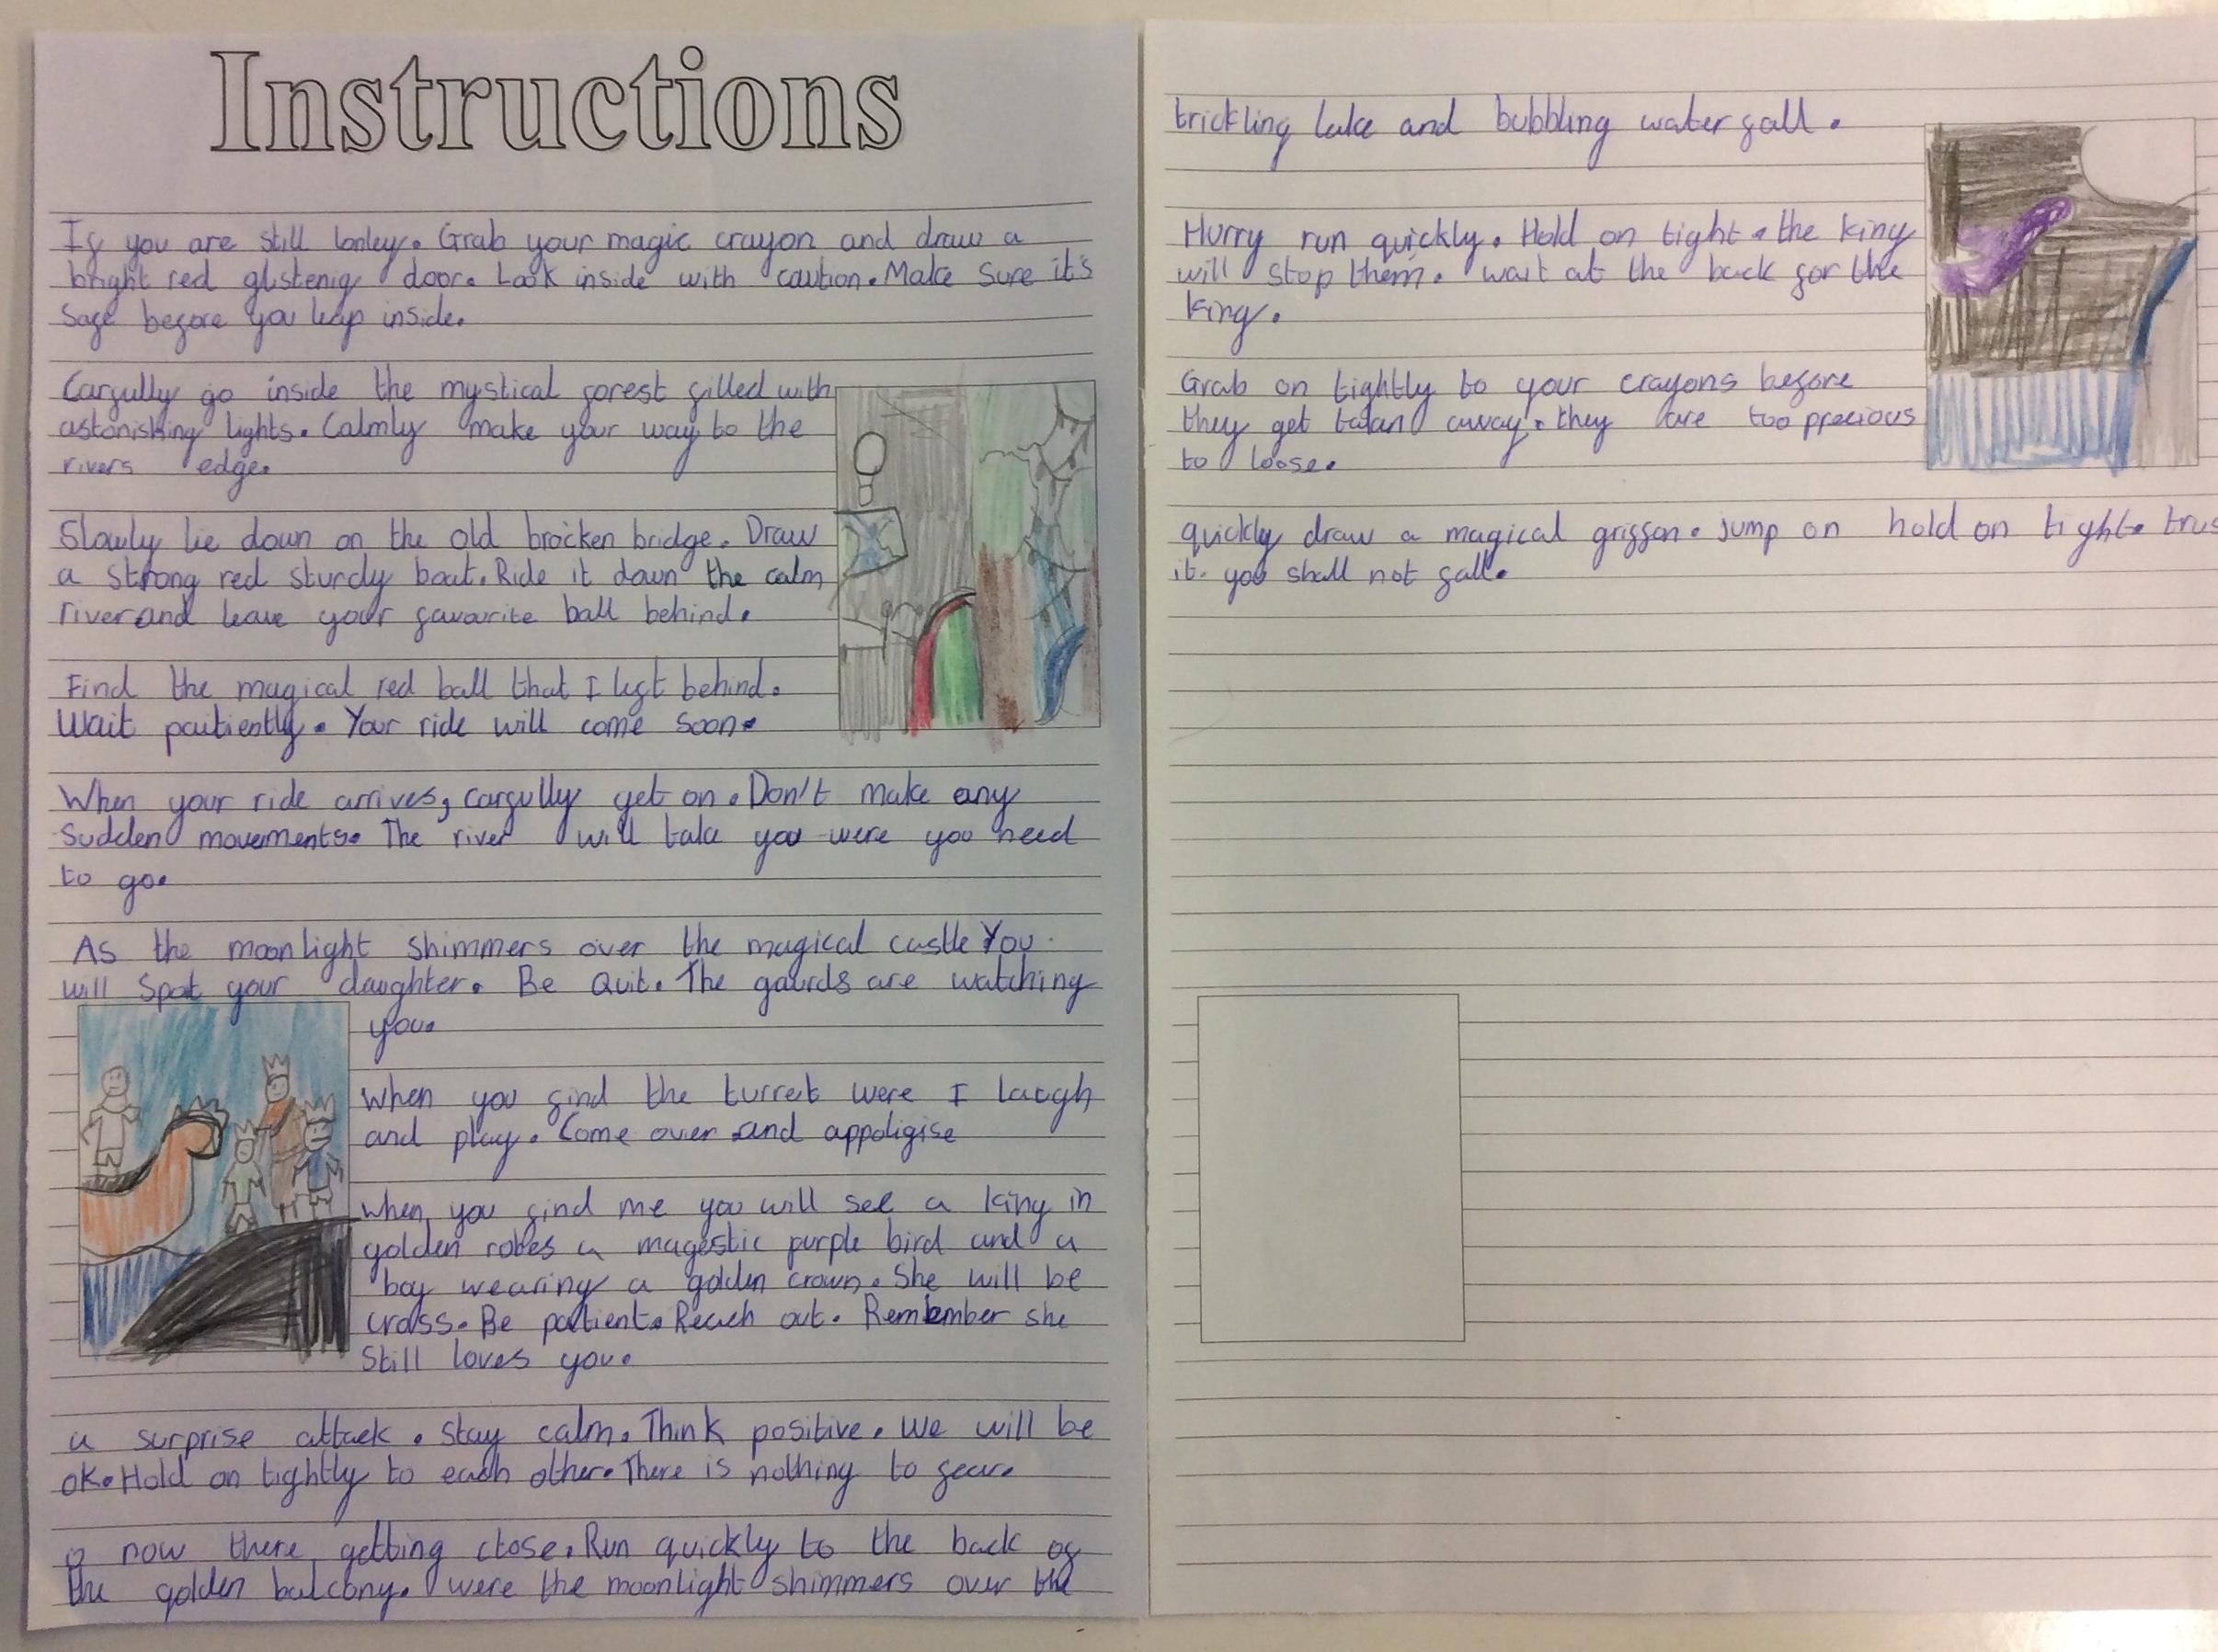 Instructions
If you are still lonley. Grab your magic crayon and draw a
bright red glistenig door. Look inside with caution. Make Sure it's
Safe before you leap inside.
Carfully go inside the mystical forest filled with
astonishing lights. Calmly make your way to the
rivers edge.
Slowly lie down on the old brocken bridge. Draw
a strong red sturdy boat. Ride it down the calm
river and leave your favourite ball behind.
Find the magical red ball that I left behind.
Wait paitiently. Your ride will come soon.
When your ride arrives, carfully get on. Don't make any
Sudden movements. The river will take you were you need
to go.
As the moonlight shimmers over the magical castle You
will spot your daughter. Be Quit. The gaurds are watching
you.
When you find the turret were I laugh
and play. Come over and appoligise
when you find me you will see a king in
golden robes a magestic purple bird and a
boy wearing a golden crown. She will be
cross. Be patient. Reach out. Remember she
Still loves you.
a surprise attack. Stay calm. Think positive. We will be
ok. Hold on tightly to each other. There is nothing to fear.
o now there getting close. Run quickly to the back of
the golden balcony. were the moonlight shimmers over the
trickling lake and bubbling waterfall.
Hurry run quickly. Hold on tight. the king
will stop them. wait at the back for the
King.
Grab on tightly to your crayons before
they get takan away. they are too precious
to loose.
quickly draw a magical griffon. Jump on hold on tight. trus
it. you shall not fall.